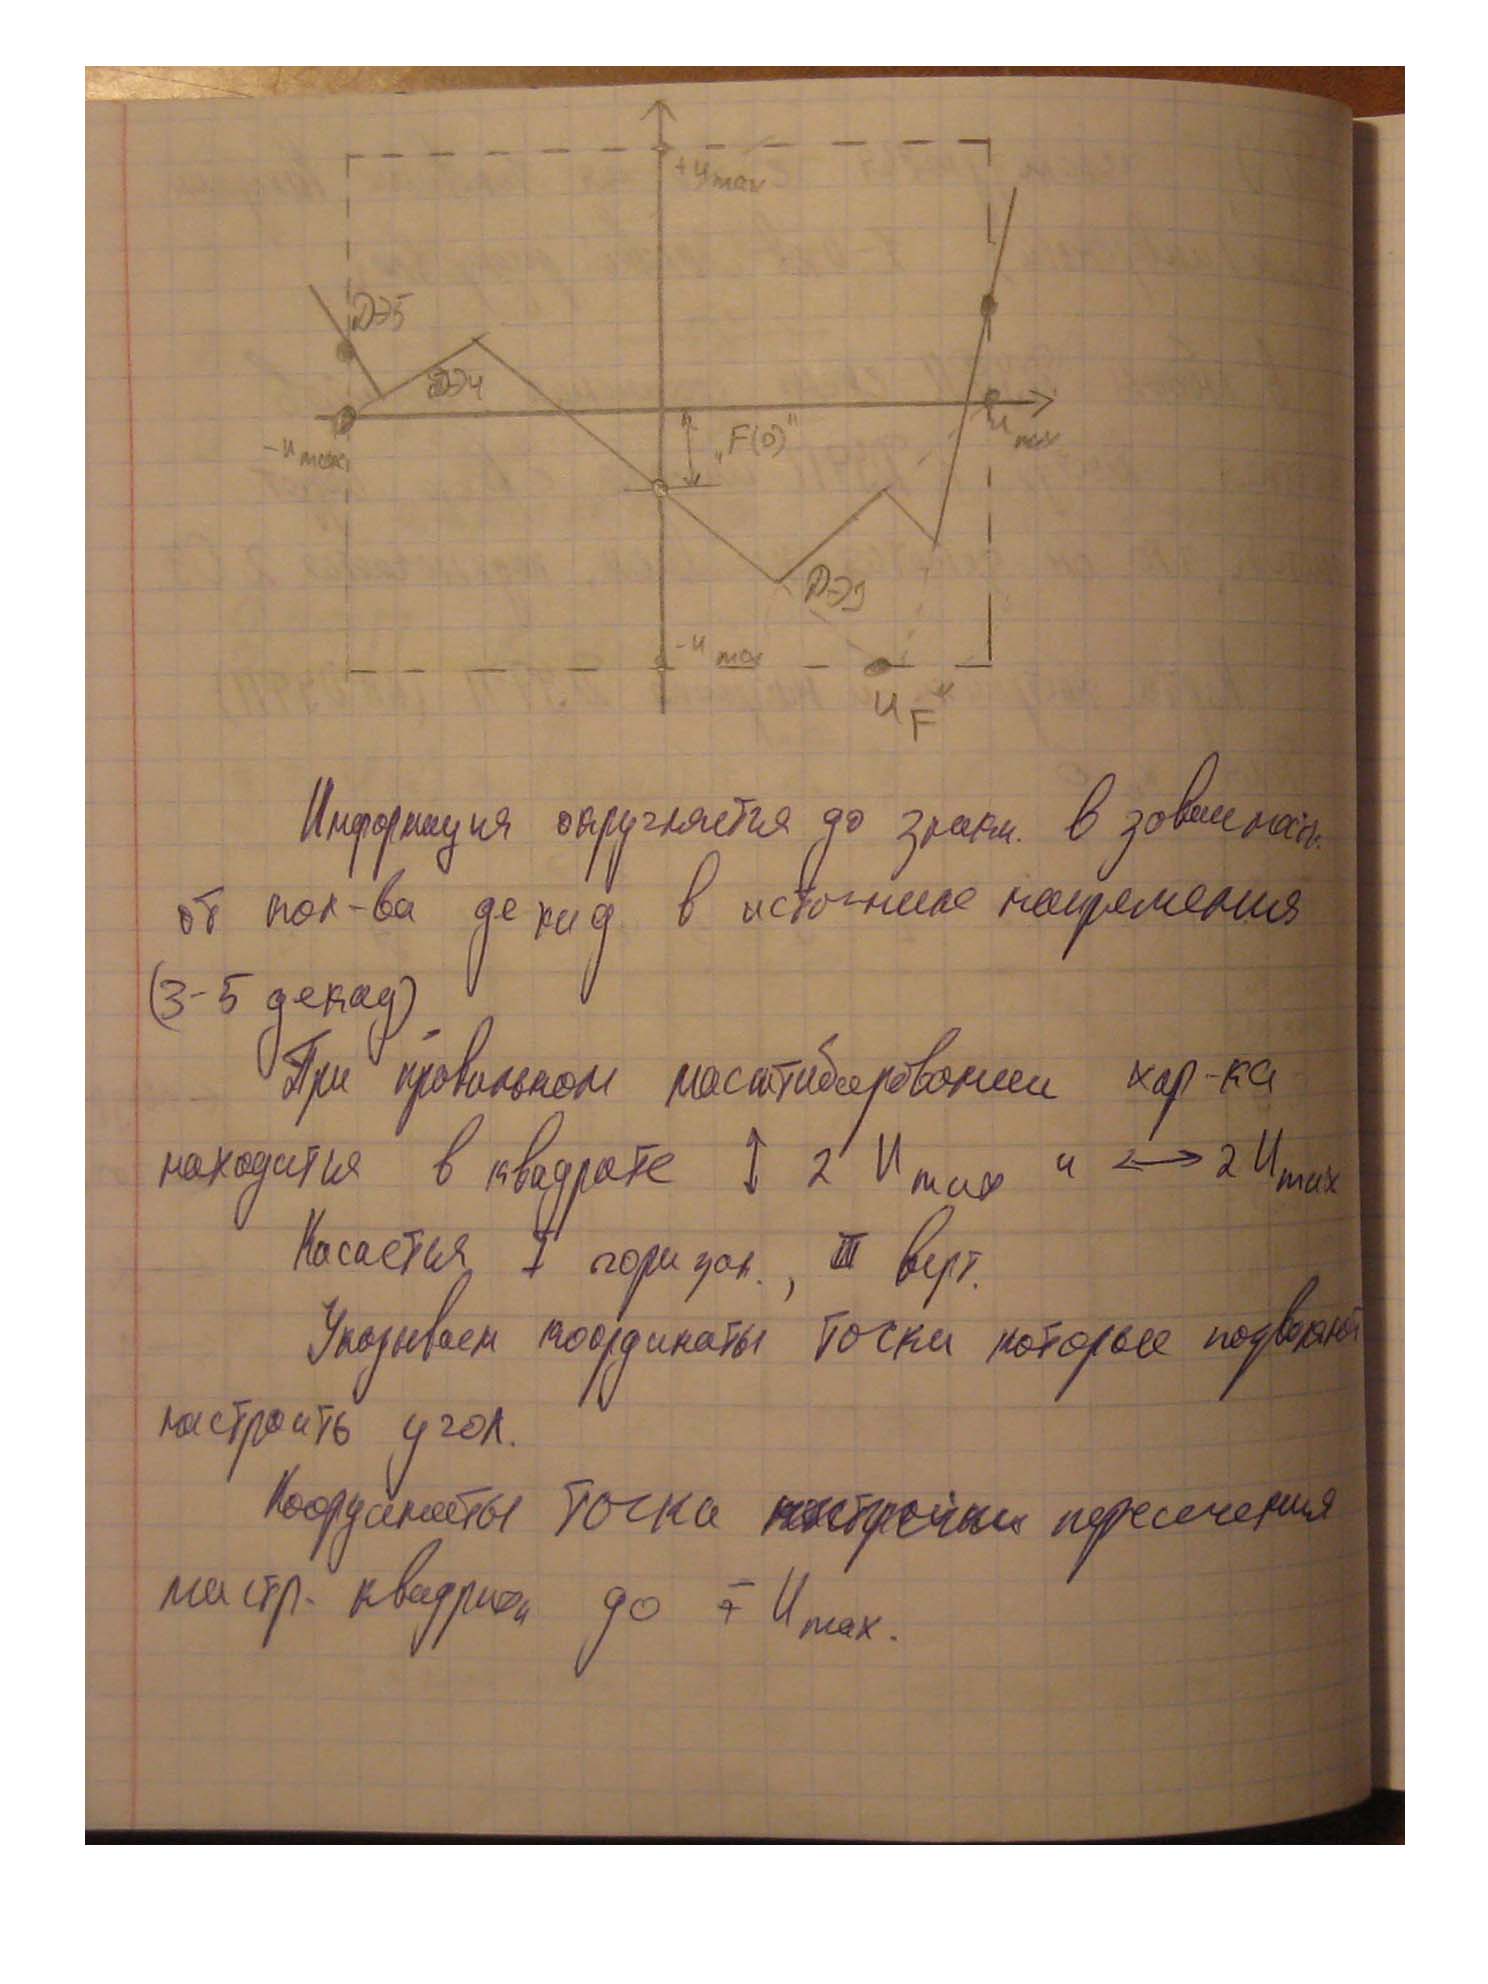 +U max
ДЭ5
ДЭ4
"F(0)"
-U max
U max
ДЭ3
-U max
U F*
Информация округляется до знак. в зависимости.
от кол-ва декад в источнике напряжения
(3-5 декад)
При правильном масштабировании хар-ка
находится в квадрате ↕ 2 U max и ↔ 2 U max
Касается I горизон., III верт.
Указываем координаты точки которые позволяют
настроить угол.
Координаты точка пересечения
квадрата до ∓ U max.